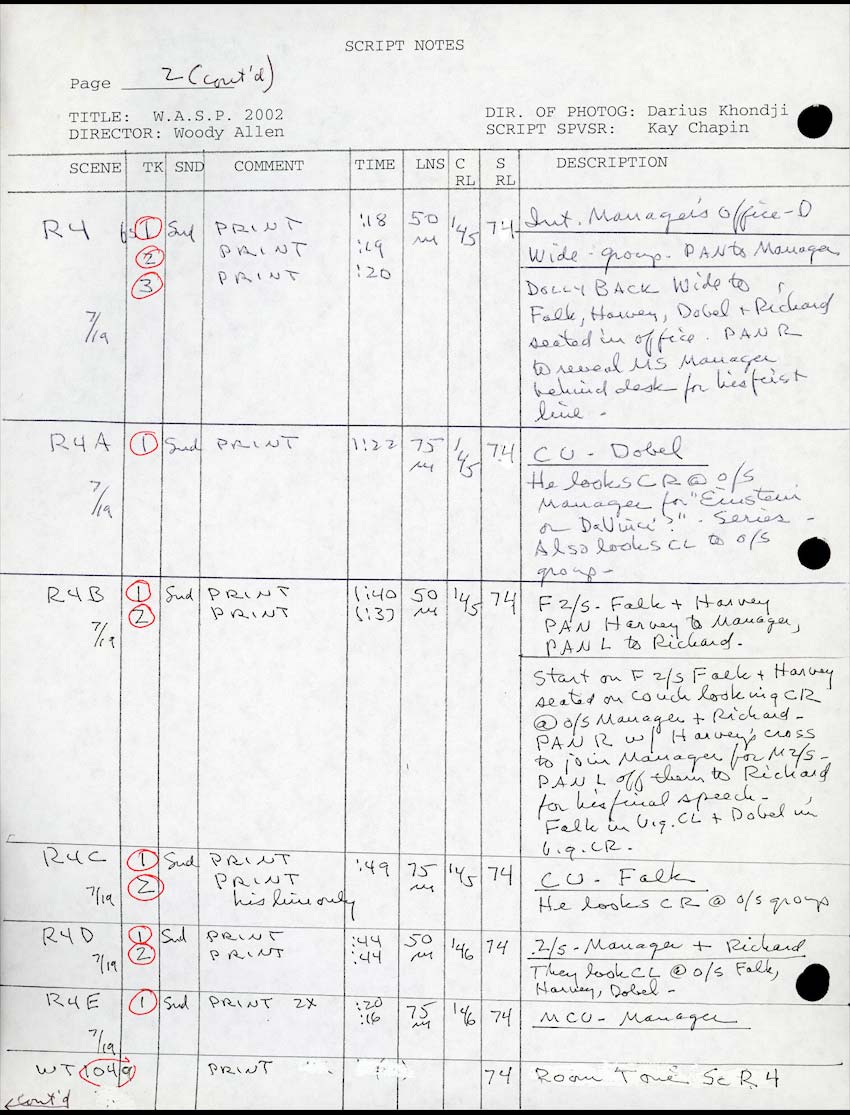 SCRIPT NOTES
Page 2 (cont'd)
TITLE: W.A.S.P. 2002 DIR. OF PHOTOG: Darius Khondji
DIRECTOR: Woody Allen SCRIPT SPVSR: Kay Chapin
SCENE TK SND COMMENT TIME LNS C RL S RL DESCRIPTION
R4 1 Snd PRINT :18 50 145 74 Int. Manager's Office-D
2 PRINT :19 Wide-group. PAN to Manager
3 PRINT :20 DOLLY BACK Wide to
Falk, Harvey, Dobel + Richard
7/19 seated in office. PAN R
to reveal MS Manager
behind desk for his first
line -
R4A 1 Snd PRINT 1:22 75 145 74 CU - Dobel
He looks CR @ o/s
7/19 Manager for "Einstein
or DaVinci?" - Series -
Also looks CL to o/s
group -
R4B 1 Snd PRINT 1:40 50 145 74 F 2/s - Falk + Harvey
2 PRINT 1:37 PAN Harvey to Manager,
7/19 PAN L to Richard.
Start on F 2/s Falk + Harvey
seated on couch looking CR
@ o/s Manager + Richard -
PAN R w/ Harvey's cross
to join Manager for M2/s -
PAN L off them to Richard
for his final speech -
Falk in v.g. CL + Dobel in
v.g. CR.
R4C 1 Snd PRINT :49 75 145 74 CU - Falk
2 PRINT
7/19 his line only He looks CR @ o/s group
R4D 1 Snd PRINT :44 50 146 74 2/s - Manager + Richard
2 PRINT :44
7/19 They look CL @ o/s Falk,
Harvey, Dobel -
R4E 1 Snd PRINT 2X :20 75 146 74 MCU - Manager
:16
7/19
WT 1049 PRINT 74 Room Tone Sc R4
cont'd